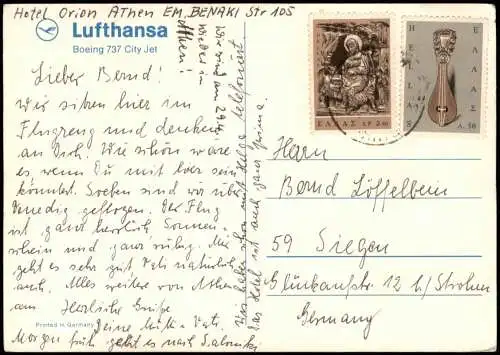 Hotel Orion Athen EM. BENAKI Str 105
Lufthansa
Boeing 737 City Jet
Lieber Bernd!
Wir sitzen hier im
Flugzeug und denken
an Dich. Wie schön wäre
es, wenn Du mit hier sein
könntest. Soeben sind wir über
Venedig geflogen. Der Flug
ist ganz herrlich, Sonnen-
schein und ganz ruhig. Mir
geht es sehr gut, Vati natürlich
auch. Alles weitere von Athen
aus. Herzliche Grüße
Deine Mutti u. Vati.
Morgen früh geht es nach Saloniki
Printed in Germany
Wir sind am 29.4.
wieder in
Athen!
Wir haben schon mit Helga telefoniert
Das Hotel ist auch ganz prima.
ΕΛΛΑΣ ΔΡ 2.50
HELLAS
ΕΛΛΑΣ
Λ. 50
Herrn
Bernd Löffelbein
59 Siegen
Glückaufstr. 12 b/ Strohm
Germany